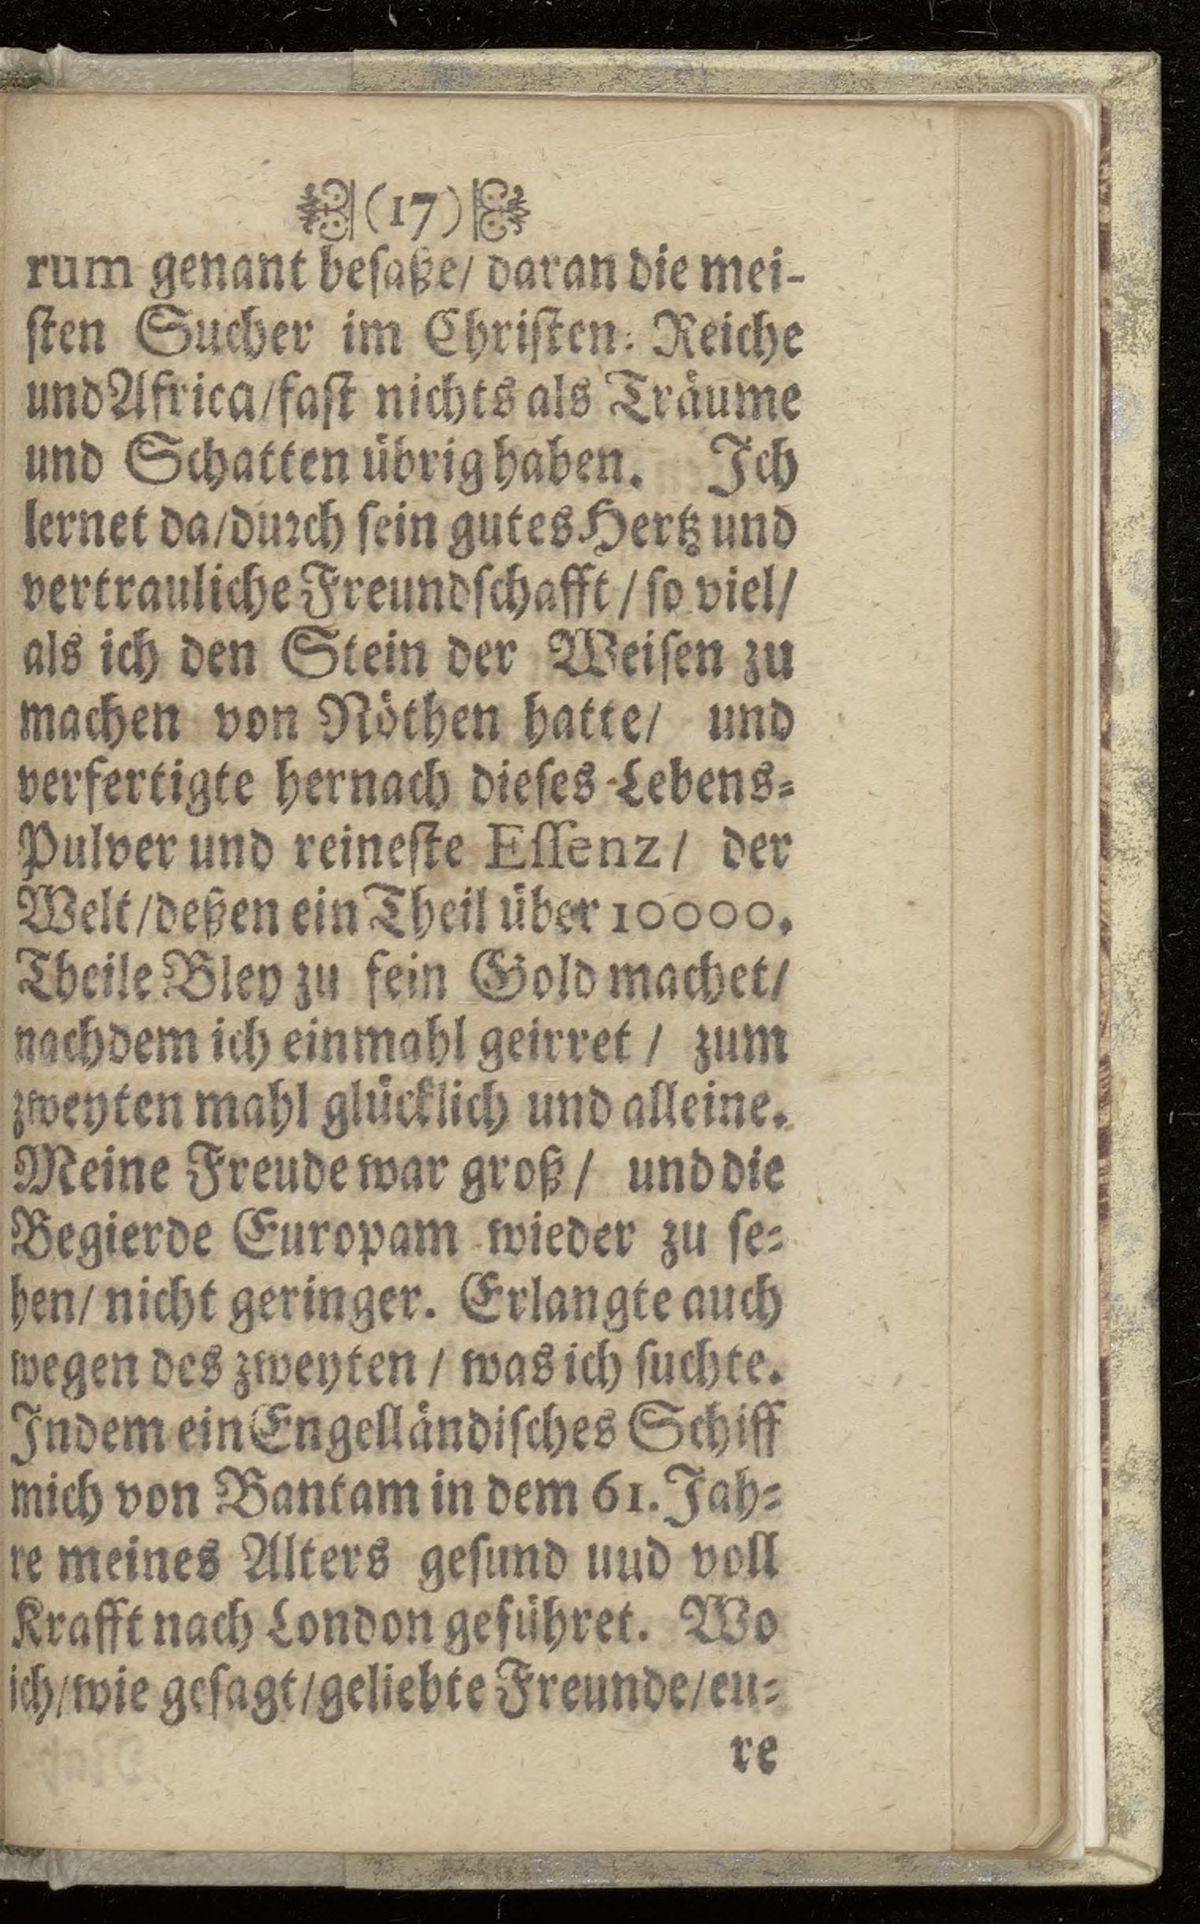 (17)
rum genant beſaße/ daran die mei-
ſten Sucher im Chriſten: Reiche
und Africa/faſt nichts als Träume
und Schatten übrig haben. Ich
lernet da/durch ſein gutes Hertz und
vertrauliche Freundſchafft / ſo viel/
als ich den Stein der Weiſen zu
machen von Nöthen hatte/ und
verfertigte hernach dieſes Lebens-
Pulver und reineſte Eſſenz / der
Welt/deßen ein Theil über 10000.
Theile Bley zu fein Gold machet/
nachdem ich einmahl geirret / zum
zweyten mahl glücklich und alleine.
Meine Freude war groß / und die
Begierde Europam wieder zu ſe-
hen/ nicht geringer. Erlangte auch
wegen des zweyten / was ich ſuchte.
Indem ein Engelländiſches Schiff
mich von Bantam in dem 61. Jah-
re meines Alters geſund uud voll
Krafft nach London geführet. Wo
ich/wie geſagt/geliebte Freunde/eu-
re